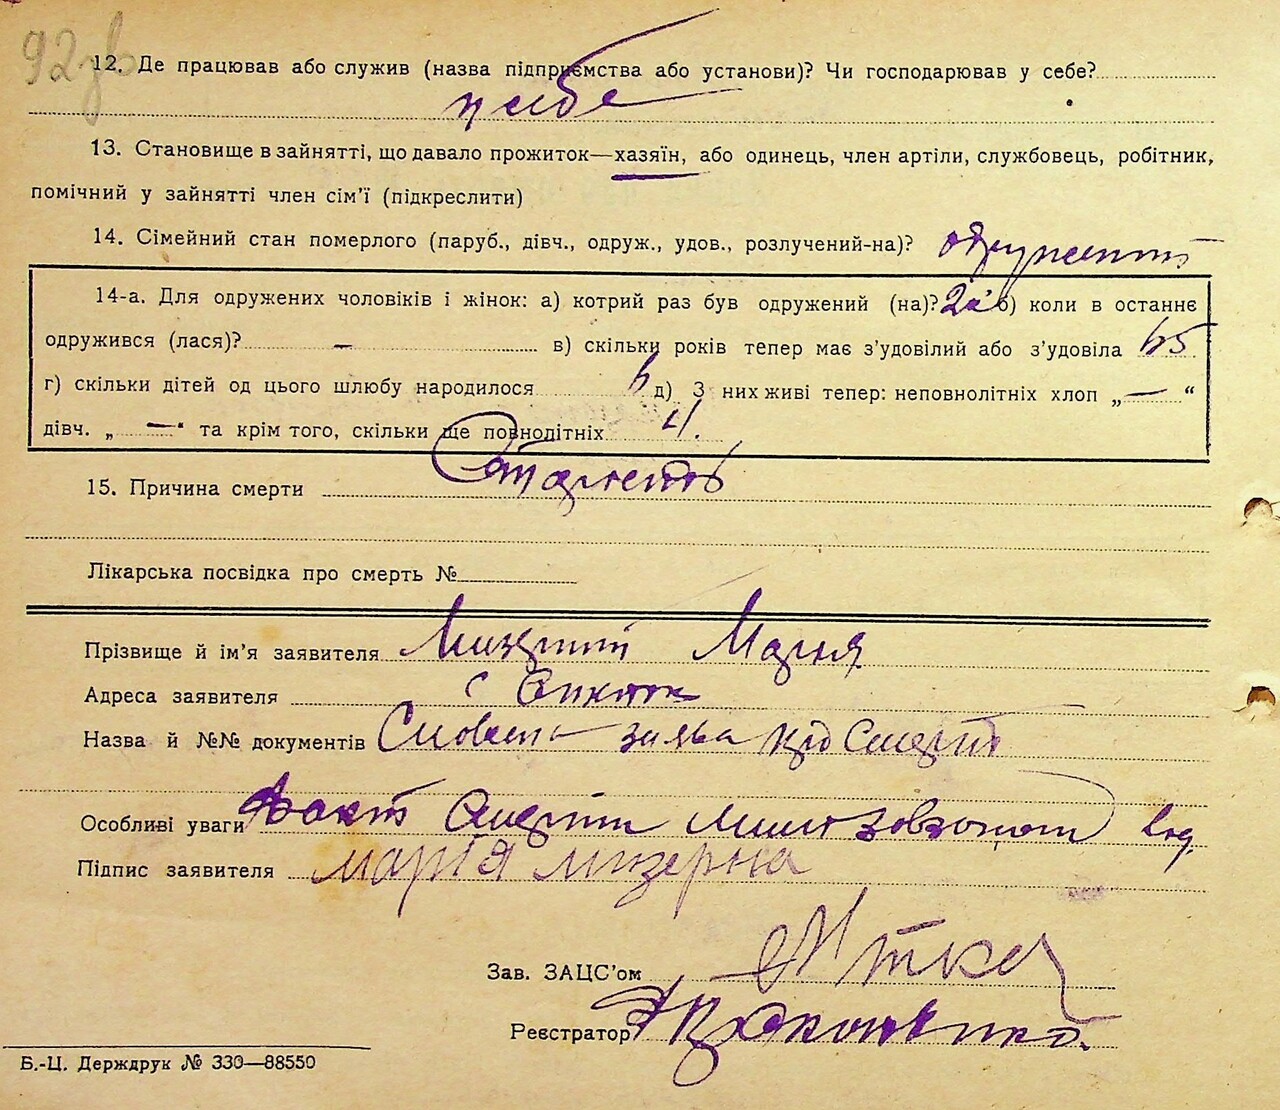 92зв
12. Де працював або служив (назва підприємства або установи)? Чи господарював у себе?
у себе
13. Становище в зайнятті, що давало прожиток—хазяїн, або одинець, член артіли, службовець, робітник,
помічний у зайнятті член сім'ї (підкреслити)
14. Сімейний стан померлого (паруб., дівч., одруж., удов., розлучений-на)? одружений
14-а. Для одружених чоловіків і жінок: а) котрий раз був одружений (на)? 2й б) коли в останнє
одружився (лася)? — в) скільки років тепер має з'удовілий або з'удовіла 65
г) скільки дітей од цього шлюбу народилося 6 д) З них живі тепер: неповнолітніх хлоп „—"
дівч. „—" та крім того, скільки ще повнолітніх 4.
15. Причина смерти Старість
Лікарська посвідка про смерть №
Прізвище й ім'я заявителя Мизерний Марія
Адреса заявителя с
Назва й №№ документів Словесна заява про смерть
Особливі уваги Факт смерти
Підпис заявителя марія мизерна
Зав. ЗАЦС'ом
Реєстратор
Б.-Ц. Держдрук № 330—88550